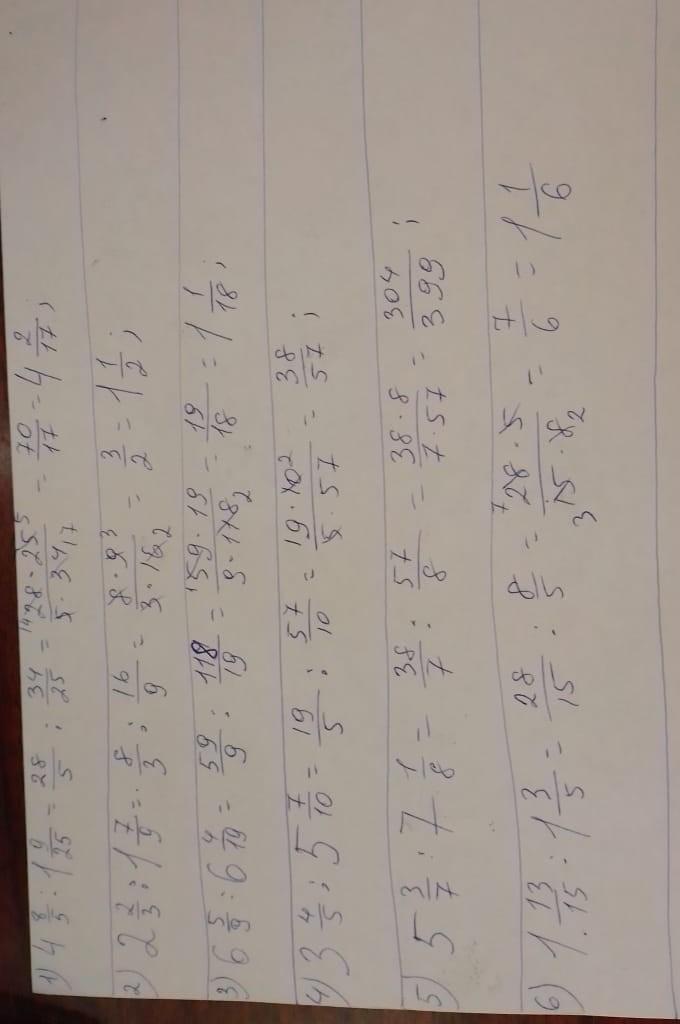 1) 4 8/5 : 1 9/25 = 28/5 : 34/25 = 28·25/5·34 = 70/17 = 4 2/17;
2) 2 2/3 : 1 7/9 = 8/3 : 16/9 = 8·9/3·16 = 3/2 = 1 1/2;
3) 6 5/9 : 6 4/19 = 59/9 : 118/19 = 59·19/9·118 = 19/18 = 1 1/18;
4) 3 4/5 : 5 7/10 = 19/5 : 57/10 = 19·10/5·57 = 38/57;
5) 5 3/7 : 7 1/8 = 38/7 : 57/8 = 38·8/7·57 = 304/399;
6) 1 13/15 : 1 3/5 = 28/15 : 8/5 = 28·5/15·8 = 7/6 = 1 1/6